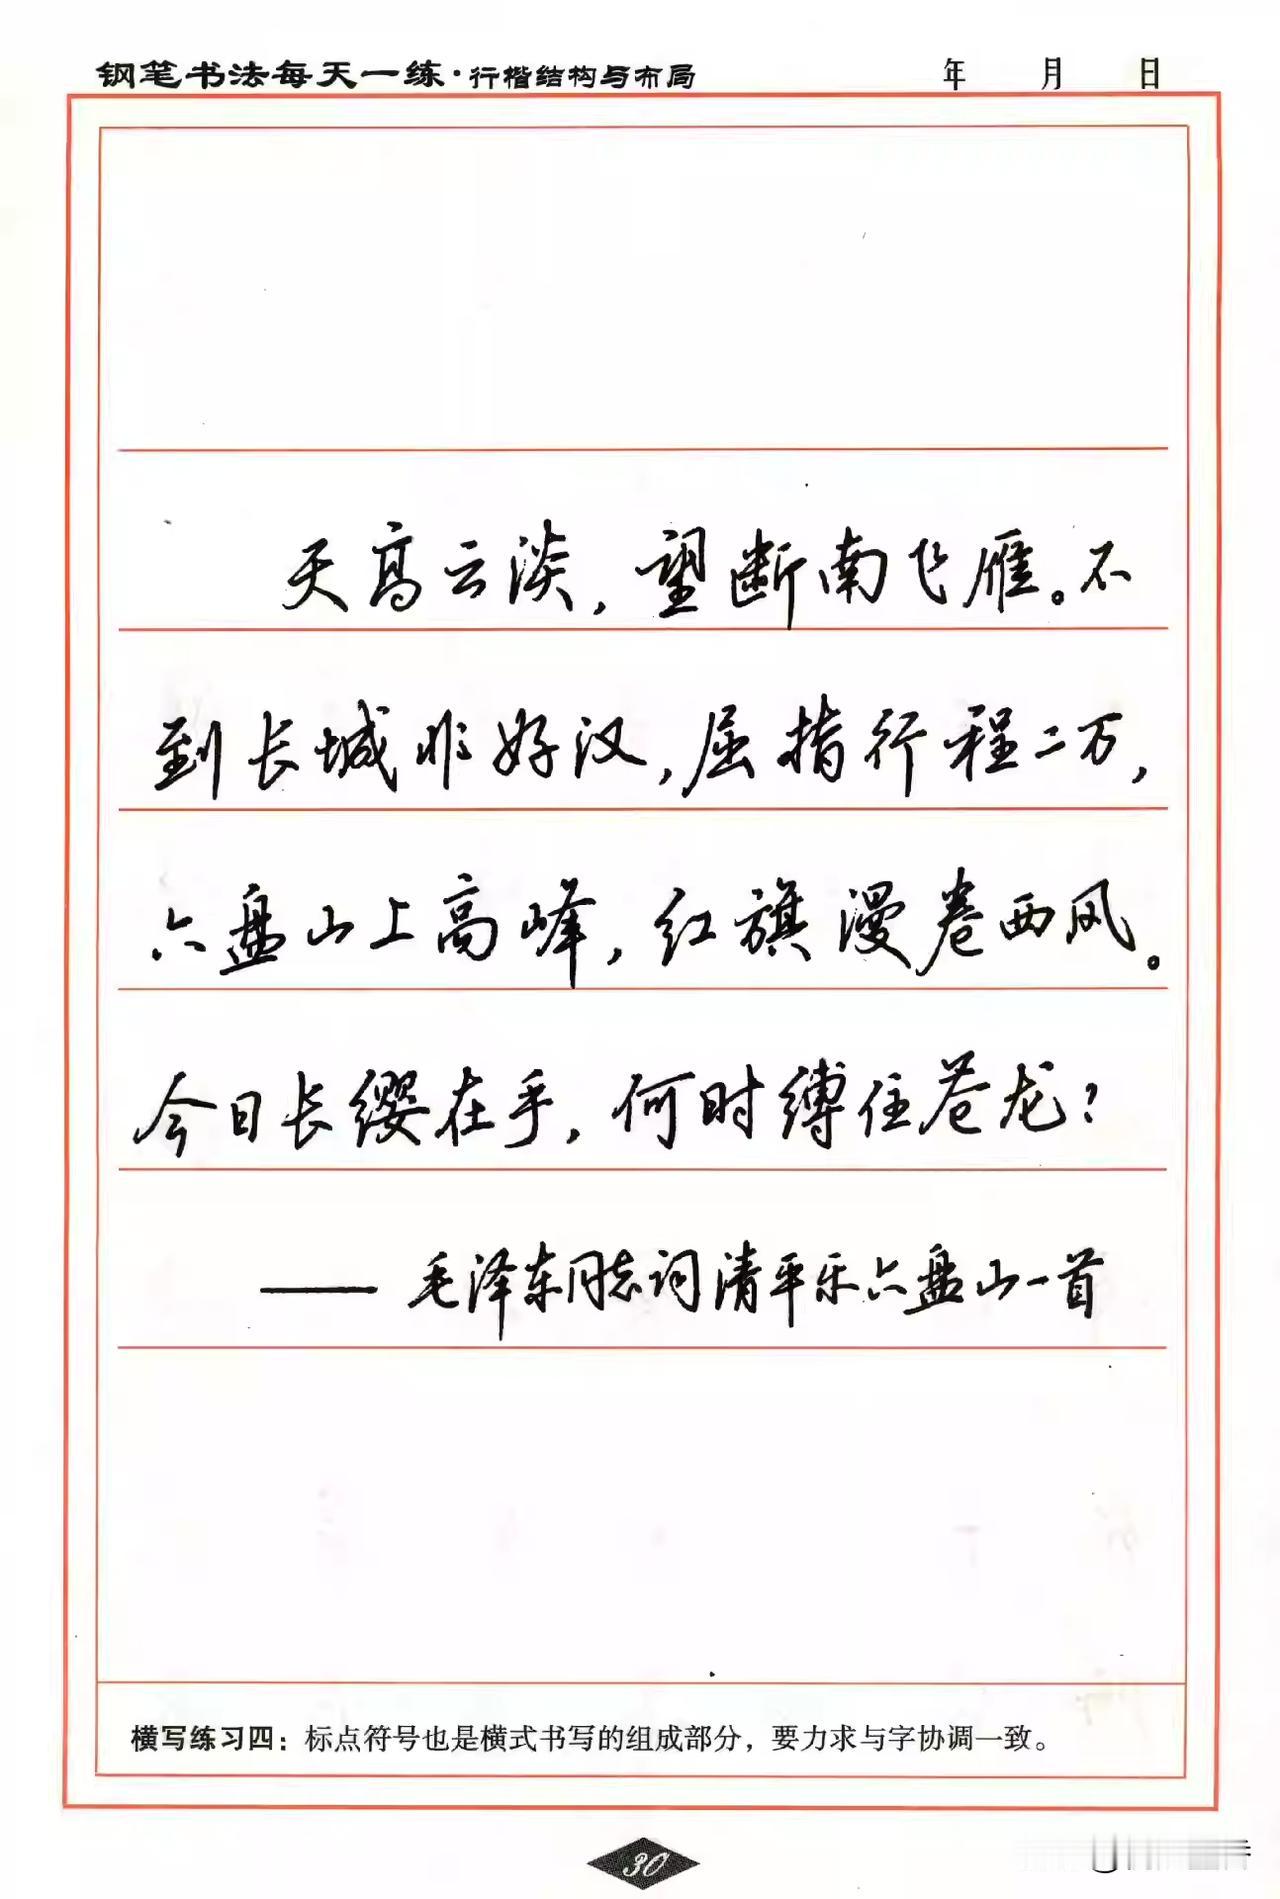 钢笔书法每天一练·行楷结构与布局 年 月 日
天高云淡，望断南飞雁。不
到长城非好汉，屈指行程二万，
六盘山上高峰，红旗漫卷西风。
今日长缨在手，何时缚住苍龙？
——毛泽东同志词清平乐六盘山一首
横写练习四：标点符号也是横式书写的组成部分，要力求与字协调一致。
30